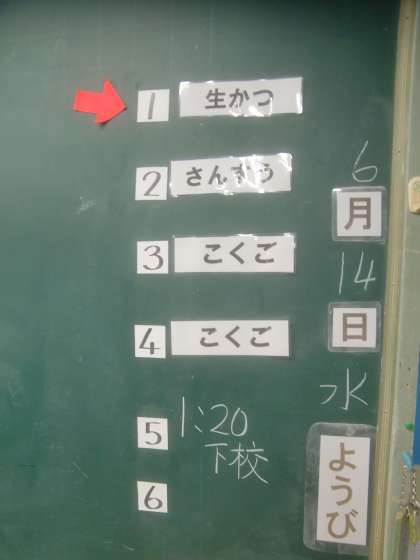 1 生かつ
2 さんすう
3 こくご
4 こくご
5 1:20
下校
6
6
月
14
日
水
ようび